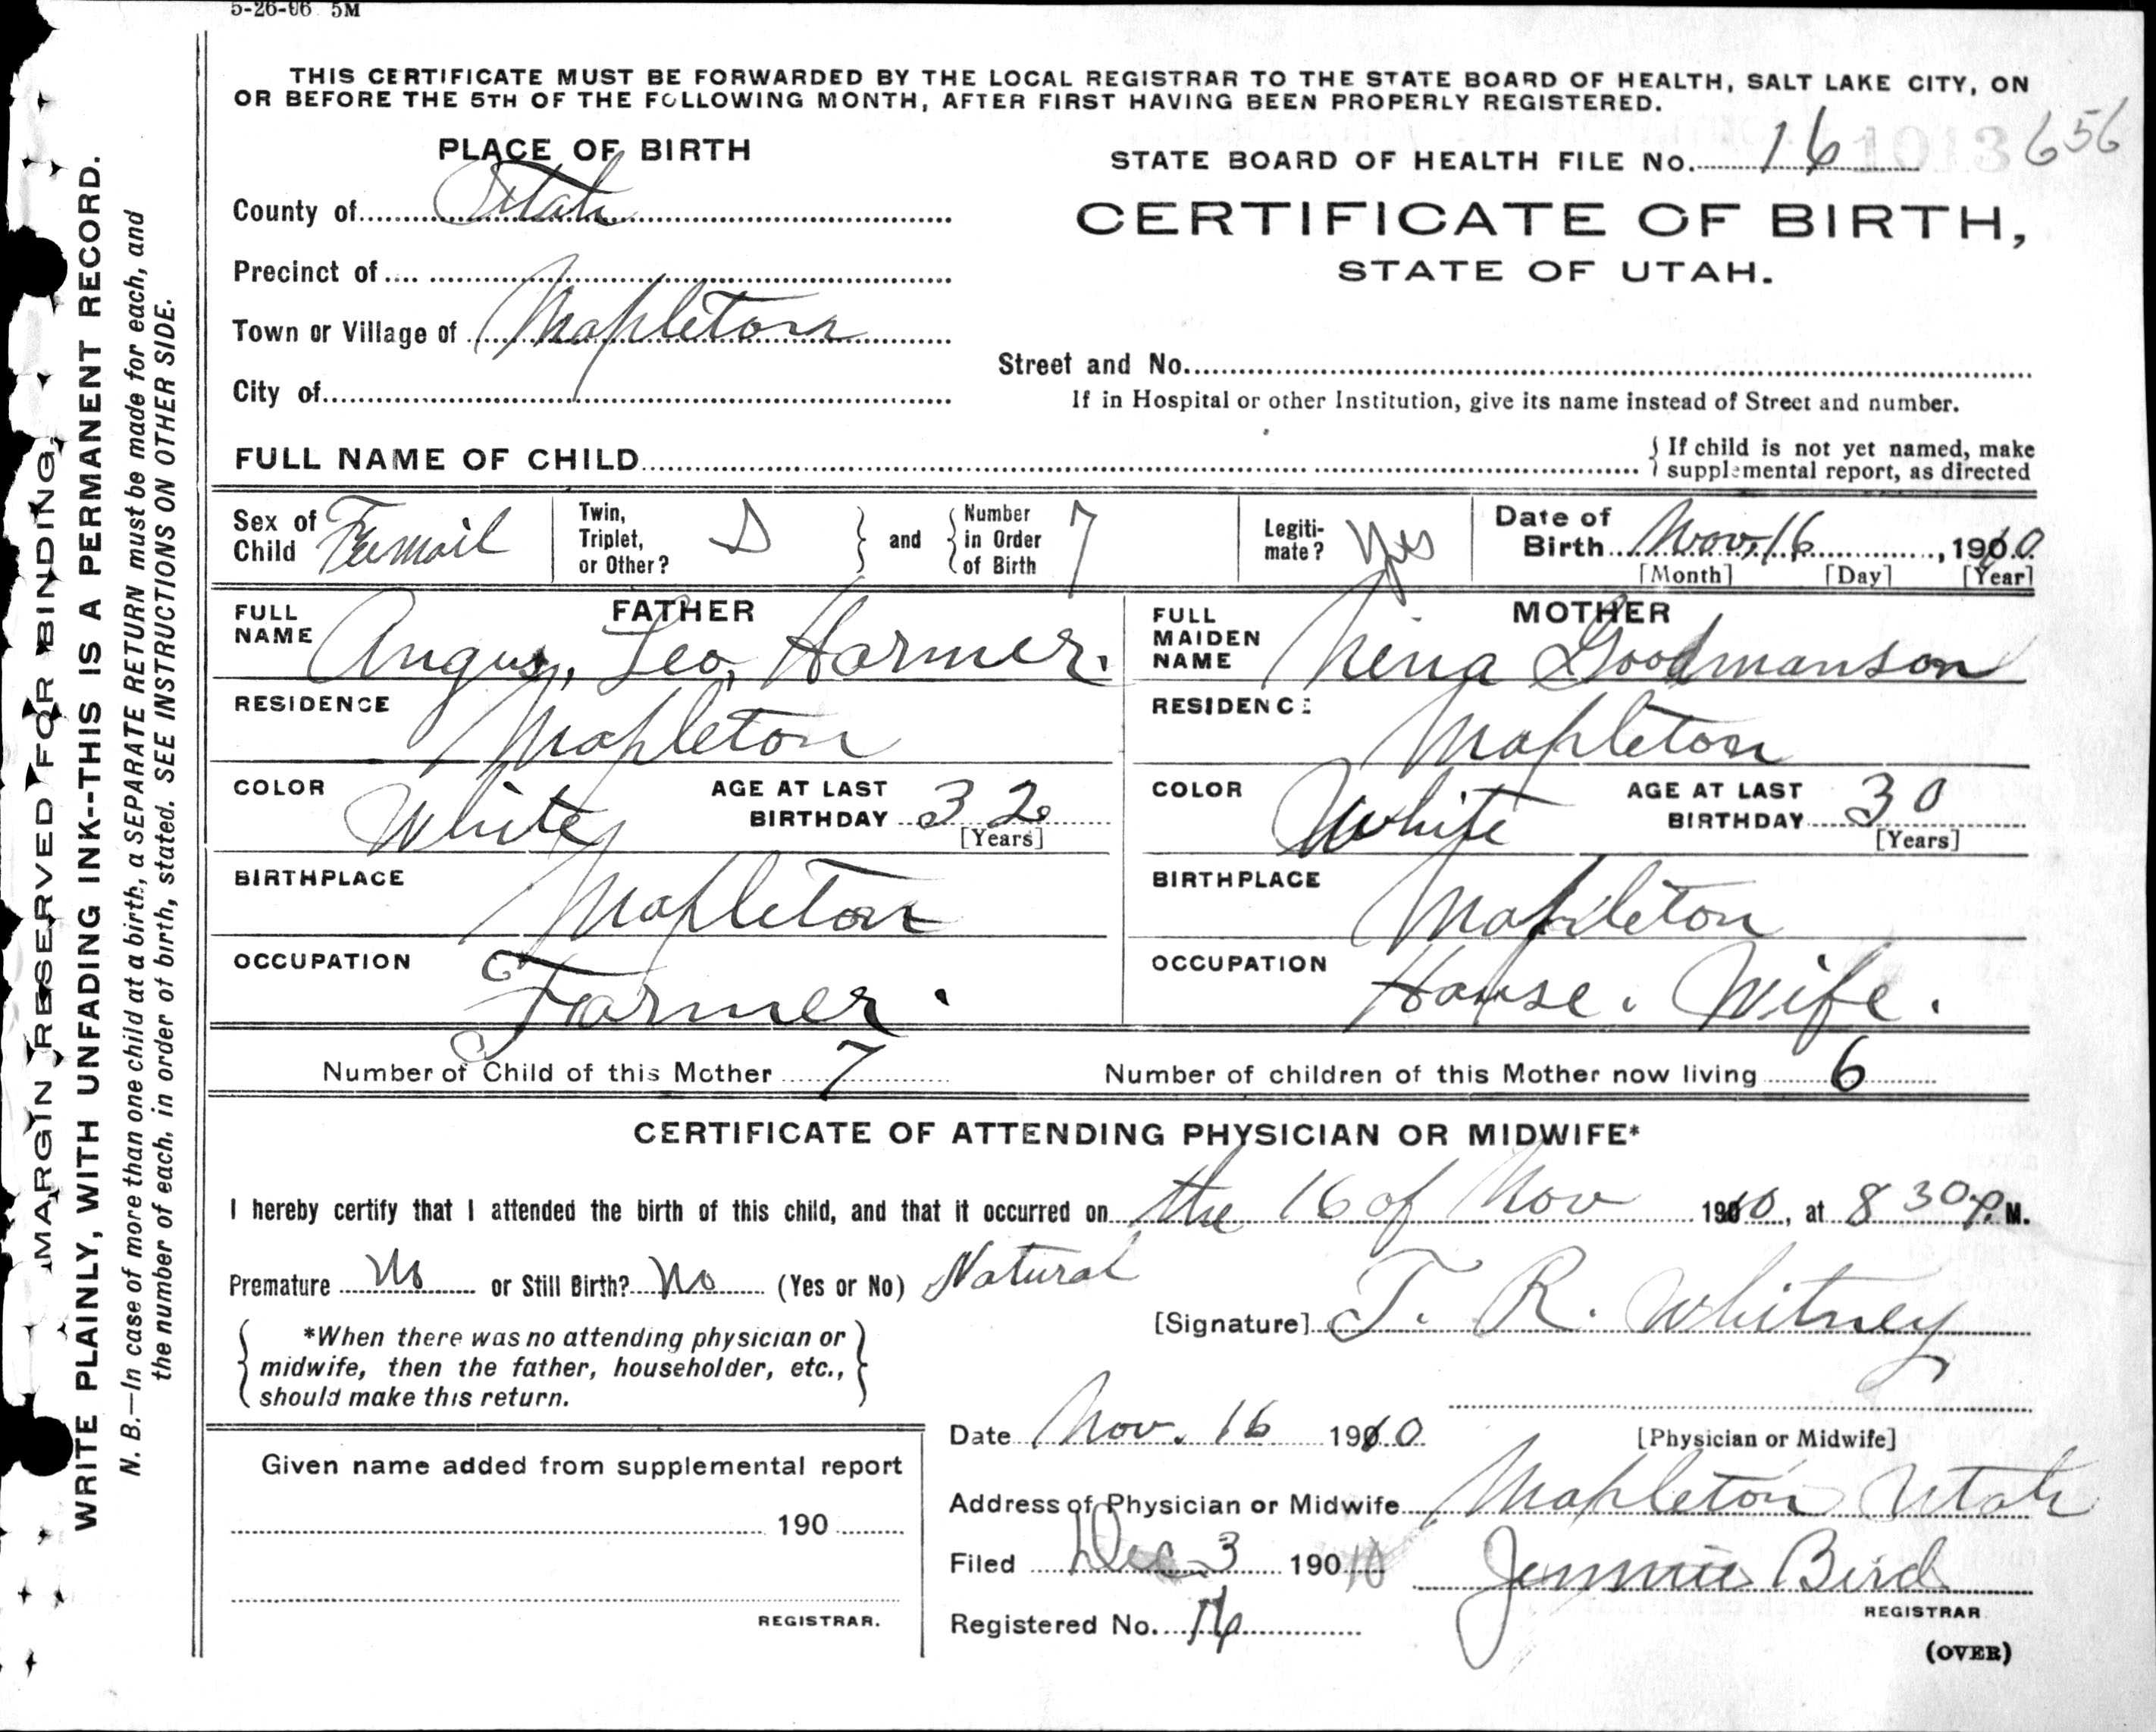 5-26-06 5M
THIS CERTIFICATE MUST BE FORWARDED BY THE LOCAL REGISTRAR TO THE STATE BOARD OF HEALTH, SALT LAKE CITY, ON
OR BEFORE THE 5TH OF THE FOLLOWING MONTH, AFTER FIRST HAVING BEEN PROPERLY REGISTERED.
PLACE OF BIRTH
County of Utah
Precinct of
Town or Village of Mapleton
City of
STATE BOARD OF HEALTH FILE No. 16 656
CERTIFICATE OF BIRTH,
STATE OF UTAH.
Street and No.
If in Hospital or other Institution, give its name instead of Street and number.
FULL NAME OF CHILD { If child is not yet named, make
supplemental report, as directed
Sex of Child Femail
Twin, Triplet, or Other? S } and { Number in Order of Birth 7
Legiti-mate? Yes
Date of Birth Nov. 16, 1910
[Month] [Day] [Year]
FATHER
FULL NAME Angus, Leo, Harmer.
RESIDENCE Mapleton
COLOR White AGE AT LAST BIRTHDAY 32 [Years]
BIRTHPLACE Mapleton
OCCUPATION Farmer.
MOTHER
FULL MAIDEN NAME Nena Goodmanson
RESIDENCE Mapleton
COLOR White AGE AT LAST BIRTHDAY 30 [Years]
BIRTHPLACE Mapleton
OCCUPATION House. Wife.
Number of Child of this Mother 7 Number of children of this Mother now living 6
CERTIFICATE OF ATTENDING PHYSICIAN OR MIDWIFE*
I hereby certify that I attended the birth of this child, and that it occurred on the 16 of Nov 1910, at 8 30 P. M.
Premature No or Still Birth? No (Yes or No) Natural
[Signature] T. R. Whitney
*When there was no attending physician or
midwife, then the father, householder, etc.,
should make this return.
[Physician or Midwife]
Date Nov. 16 1910
Address of Physician or Midwife Mapleton Utah
Filed Dec 3 190 10 Jennie Bird
REGISTRAR
Registered No. 16
(OVER)
Given name added from supplemental report
190
REGISTRAR.
MARGIN RESERVED FOR BINDING
WRITE PLAINLY, WITH UNFADING INK--THIS IS A PERMANENT RECORD.
N. B.—In case of more than one child at a birth, a SEPARATE RETURN must be made for each, and
the number of each, in order of birth, stated. SEE INSTRUCTIONS ON OTHER SIDE.